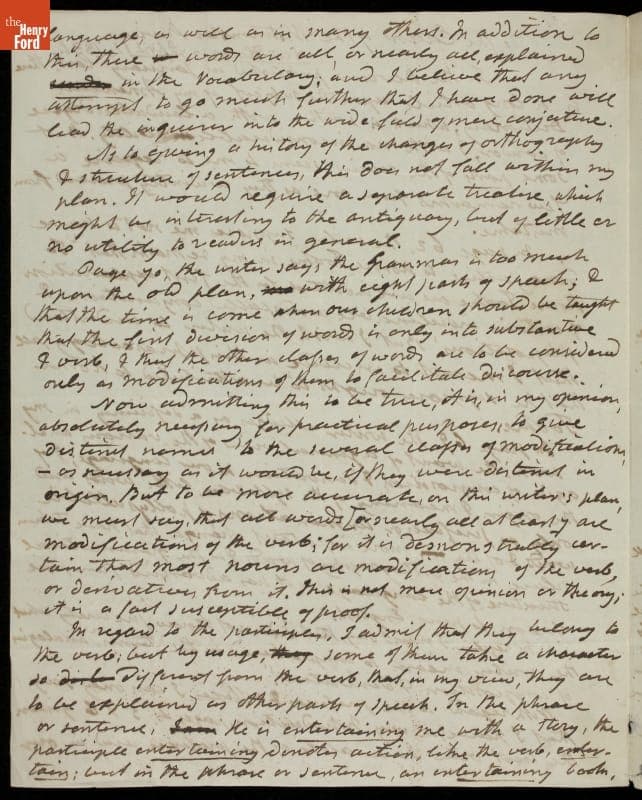 the
Henry
Ford
language, as well as in many others. In addition to
this, these words are all, or nearly all, explained
in the Vocabulary; and I believe that any
attempt to go much further that I have done will
lead the inquirer into the wide field of mere conjecture.
As to giving a history of the changes of orthography
& structure of sentences, this does not fall within my
plan. It would require a separate treatise, which
might be interesting to the antiquary, but of little or
no utility to readers in general.
Page 90, the writer says the Grammar is too much
upon the old plan, with eight parts of speech; &
that the time is come when our children should be taught
that the first division of words is only into substantive
& verb, & that the other classes of words are to be considered
only as modifications of them to facilitate discourse.
Now admitting this to be true, it is, in my opinion,
absolutely necessary for practical purposes, to give
distinct names to the several classes of modifications,
– as necessary as it would be, if they were distinct in
origin. But to be more accurate, on this writer's plan,
we must say, that all words [or nearly all at least] are
modifications of the verb; for it is demonstrably cer-
tain that most nouns are modifications of the verb,
or derivatives from it. This is not mere opinion or theory;
it is a fact susceptible of proof.
In regard to the participles, I admit that they belong to
the verb; but by usage, some of them take a character
so different from the verb, that, in my view, they are
to be explained as other parts of speech. In the phrase
or sentence, He is entertaining me with a story, the
participle entertaining denotes action, like the verb, enter-
tain; but in the phrase or sentence, an entertaining book,